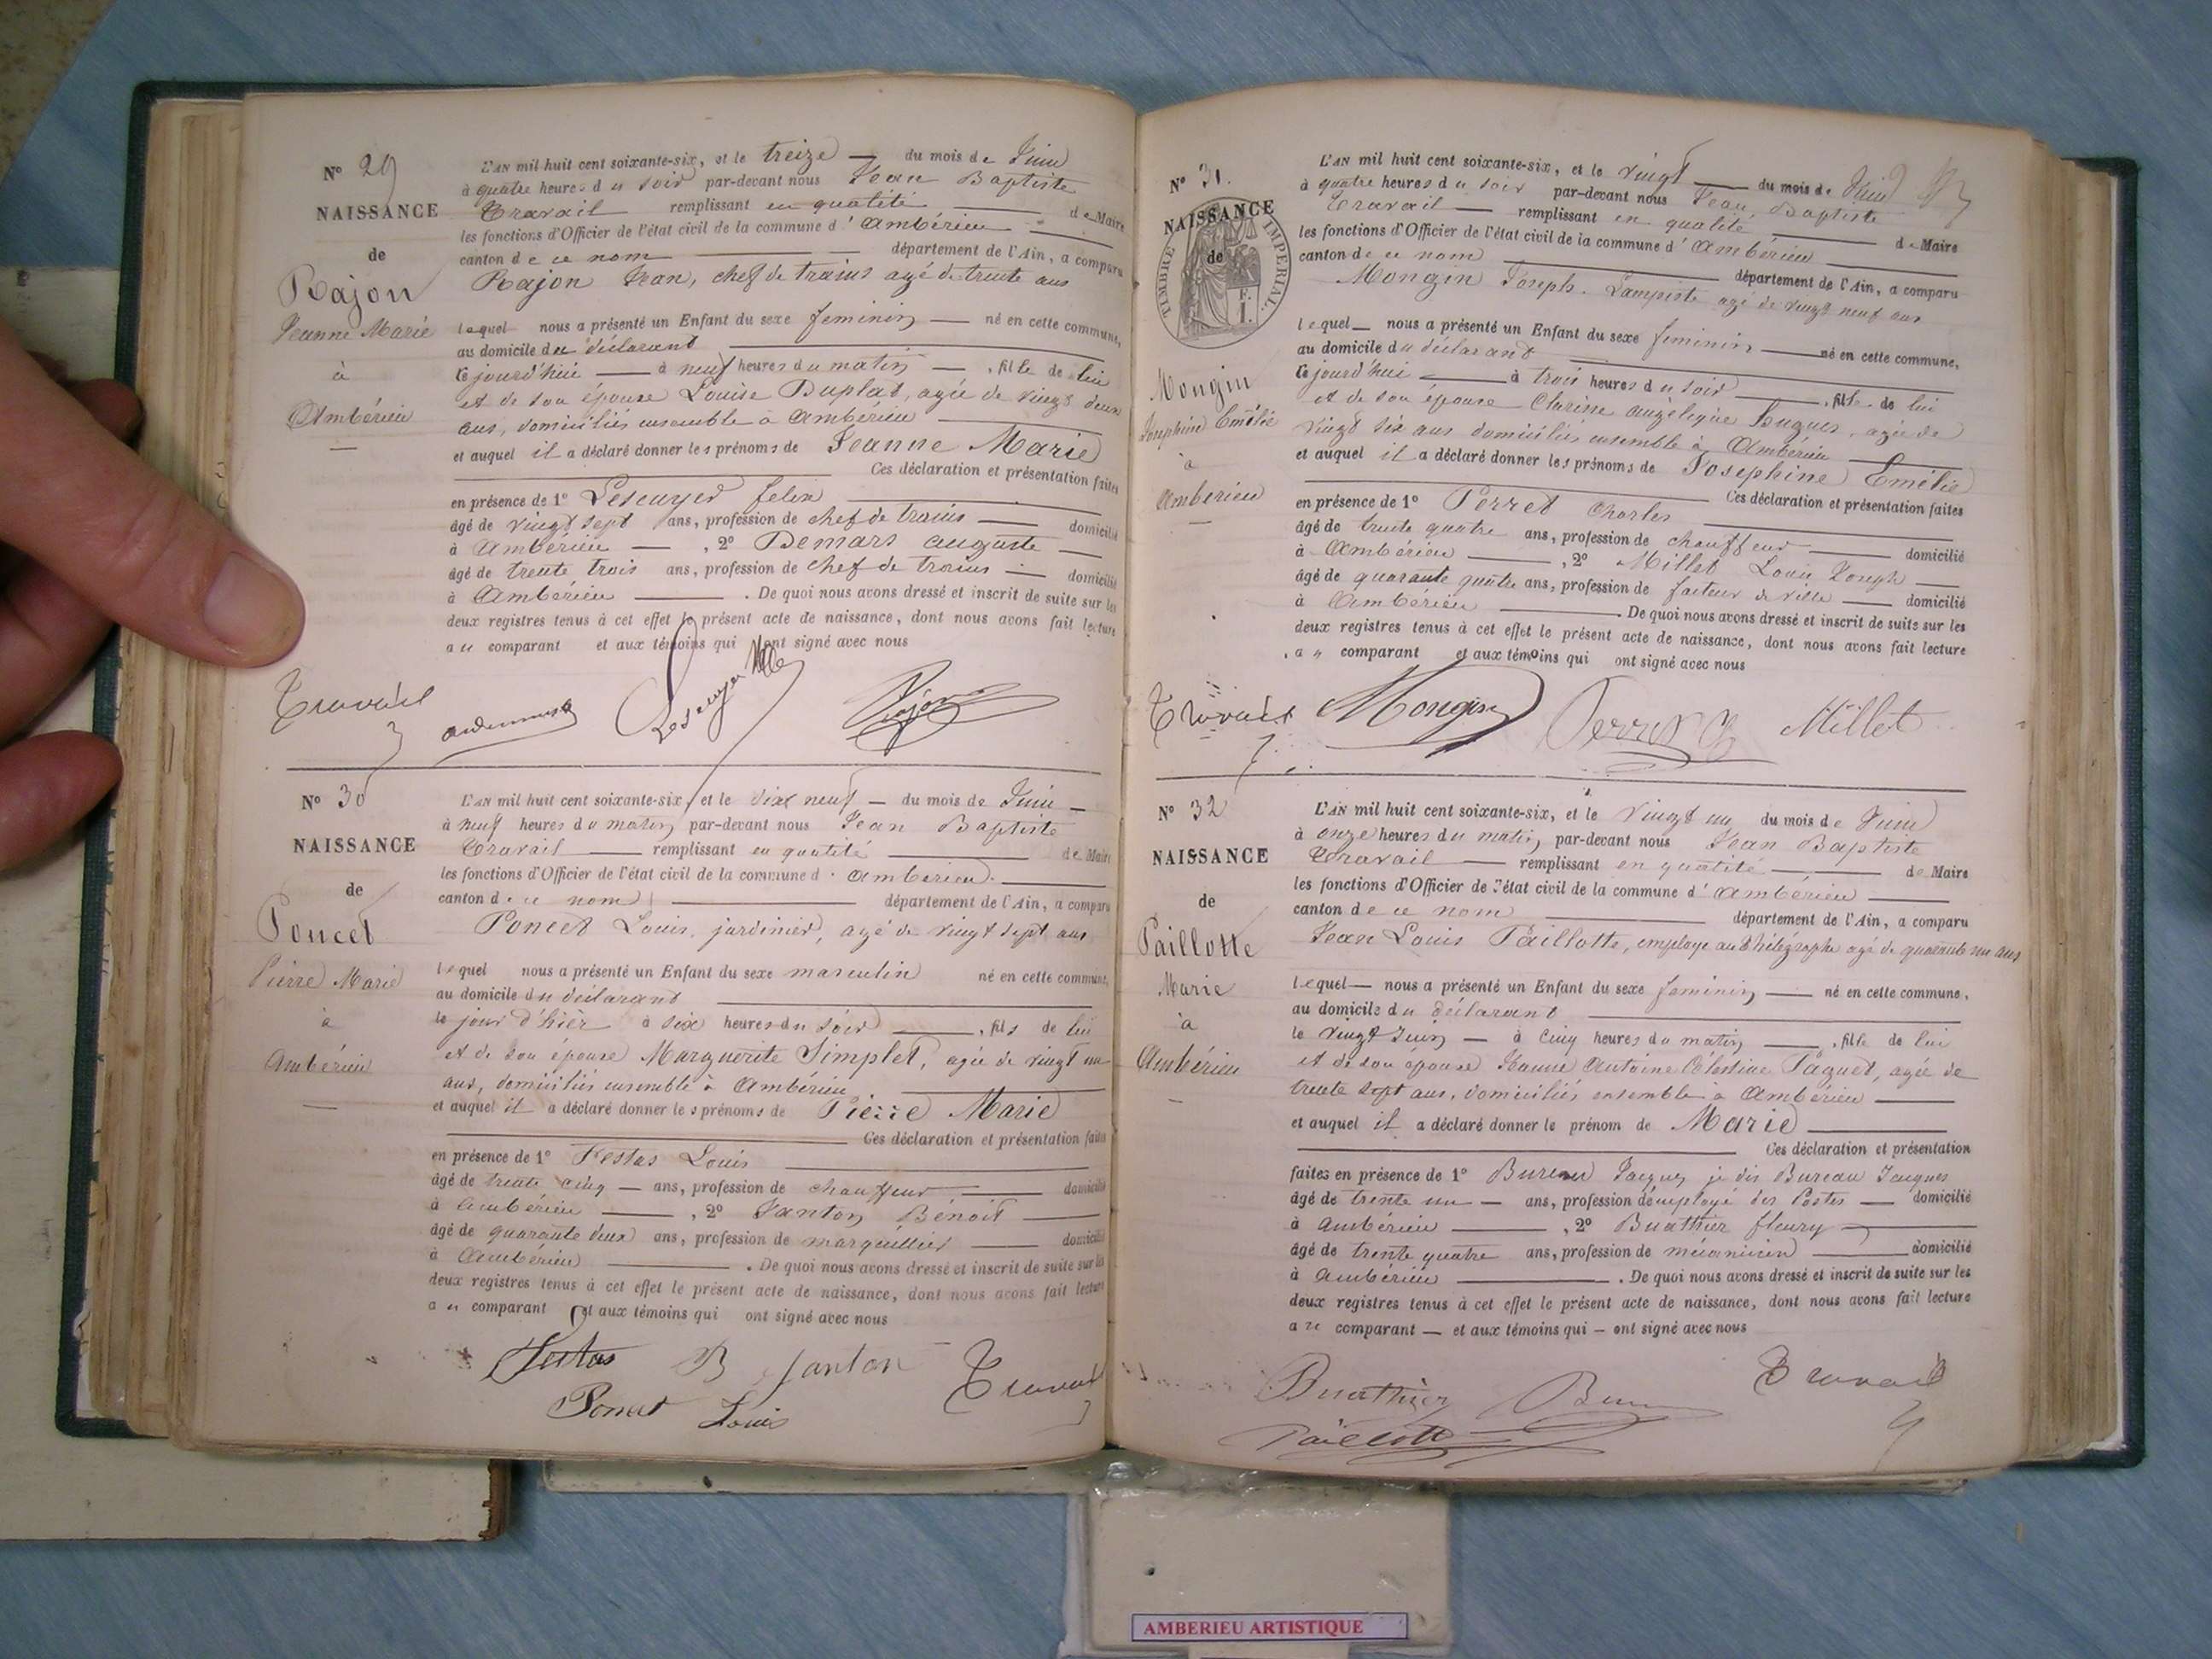 N° 29
NAISSANCE
de
Rajon
Jeanne Marie
à
Ambérieu
L'AN mil huit cent soixante-six, et le treize — du mois de Juin
à quatre heures du soir par-devant nous Jean Baptiste
Travail remplissant en qualité de Maire
les fonctions d'Officier de l'état civil de la commune d'Ambérieu
canton de ce nom département de l'Ain, a comparu
Rajon Jean, chef de trains agé de trente ans
lequel nous a présenté un Enfant du sexe feminin — né en cette commune,
au domicile du déclarant
ce jourd'hui — à neuf heures du matin — , fille de lui
et de son épouse Louise Duplat, agée de vingt deux
ans, domiciliés ensemble à Ambérieu
et auquel il a déclaré donner les prénoms de Jeanne Marie
Ces déclaration et présentation faites
en présence de 1° Lescuyer felix
âgé de vingt sept ans, profession de chef de trains — domicilié
à Ambérieu — , 2° Demars auguste
âgé de trente trois ans, profession de chef de trains — domicilié
à Ambérieu . De quoi nous avons dressé et inscrit de suite sur les
deux registres tenus à cet effet le présent acte de naissance, dont nous avons fait lecture
au comparant et aux témoins qui ont signé avec nous
Travail Lescuyer Rajon
N° 30
NAISSANCE
de
Poncet
Pierre Marie
à
Ambérieu
L'AN mil huit cent soixante-six, et le dix neuf — du mois de Juin —
à neuf heures du matin par-devant nous Jean Baptiste
Travail — remplissant en qualité de Maire
les fonctions d'Officier de l'état civil de la commune d'Ambérieu
canton de ce nom département de l'Ain, a comparu
Poncet Louis, jardinier, agé de vingt sept ans
lequel nous a présenté un Enfant du sexe masculin né en cette commune,
au domicile du déclarant
le jour d'hier à six heures du soir — , fils de lui
et de son épouse Marguerite Simplet, agée de vingt un
ans, domiciliés ensemble à Ambérieu
et auquel il a déclaré donner les prénoms de Pierre Marie
Ces déclaration et présentation faites
en présence de 1° Festas Louis
âgé de trente cinq — ans, profession de chauffeur — domicilié
à Ambérieu — , 2° Janton Bénoit
âgé de quarante deux ans, profession de marguillier — domicilié
à Ambérieu . De quoi nous avons dressé et inscrit de suite sur les
deux registres tenus à cet effet le présent acte de naissance, dont nous avons fait lecture
au comparant et aux témoins qui ont signé avec nous
Festas B Janton Travail
Poncet Louis
N° 31.
NAISSANCE
de
TIMBRE IMPERIAL
Mongin
Josephine Emélie
à
Ambérieu
L'AN mil huit cent soixante-six, et le vingt — du mois de Juin
à quatre heures du soir par-devant nous Jean Baptiste
Travail — remplissant en qualité de Maire
les fonctions d'Officier de l'état civil de la commune d'Ambérieu
canton de ce nom département de l'Ain, a comparu
Mongin Joseph. Lampiste agé de vingt neuf ans
lequel — nous a présenté un Enfant du sexe feminin — né en cette commune,
au domicile du déclarant
ce jourd'hui — à trois heures du soir — , fille de lui
et de son épouse Clarisse angélique Hugues, agée de
vingt six ans domiciliés ensemble à Ambérieu
et auquel il a déclaré donner les prénoms de Josephine Emélie
Ces déclaration et présentation faites
en présence de 1° Perret Charles
âgé de trente quatre ans, profession de chauffeur — domicilié
à Ambérieu — , 2° Millet Louis Joseph —
âgé de quarante quatre ans, profession de facteur de ville — domicilié
à Ambérieu . De quoi nous avons dressé et inscrit de suite sur les
deux registres tenus à cet effet le présent acte de naissance, dont nous avons fait lecture
au comparant et aux témoins qui ont signé avec nous
Travail Mongin Perret Millet
N° 32
NAISSANCE
de
Paillotte
Marie
à
Ambérieu
L'AN mil huit cent soixante-six, et le vingt un du mois de Juin
à onze heures du matin, par-devant nous Jean Baptiste
Travail — remplissant en qualité de Maire
les fonctions d'Officier de l'état civil de la commune d'Ambérieu
canton de ce nom département de l'Ain, a comparu
Jean Louis Paillotte, employé au thélégraphe agé de quarante un ans
lequel — nous a présenté un Enfant du sexe feminin — né en cette commune,
au domicile du déclarant
le vingt Juin — à cinq heures du matin — , fille de lui
et de son épouse Jeanne Antoine Célestine Paquet, agée de
trente sept ans, domiciliés ensemble à Ambérieu
et auquel il a déclaré donner le prénom de Marie
Ces déclaration et présentation
faites en présence de 1° Bureau Jacques je dis Bureau Jacques
âgé de trente un — ans, profession d'employé des Postes — domicilié
à Ambérieu — , 2° Buathier fleury
âgé de trente quatre ans, profession de mécanicien domicilié
à Ambérieu . De quoi nous avons dressé et inscrit de suite sur les
deux registres tenus à cet effet le présent acte de naissance, dont nous avons fait lecture
au comparant — et aux témoins qui — ont signé avec nous
Buathier Travail
Paillotte
AMBERIEU ARTISTIQUE